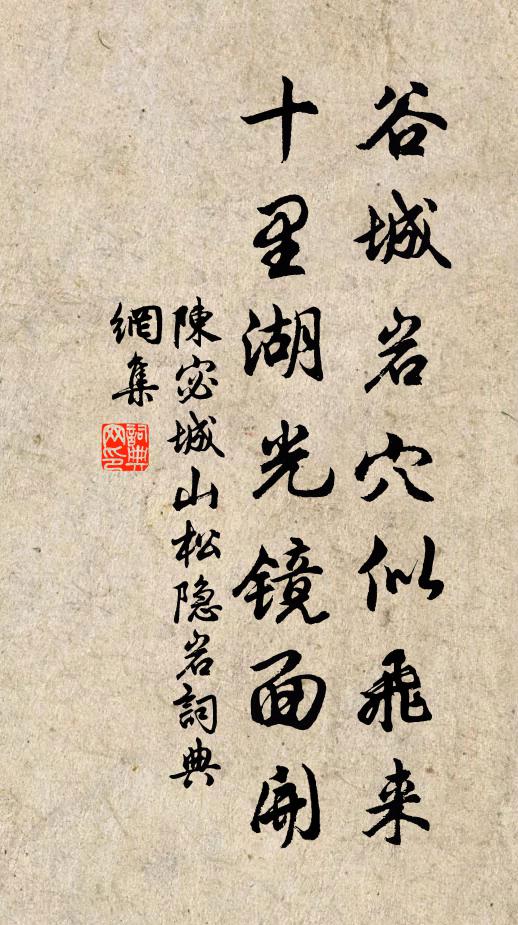 谷城岩穴似飛来
十里湖光镜面開
陳宓城山松隐岩詞典
網集
詞典
网印